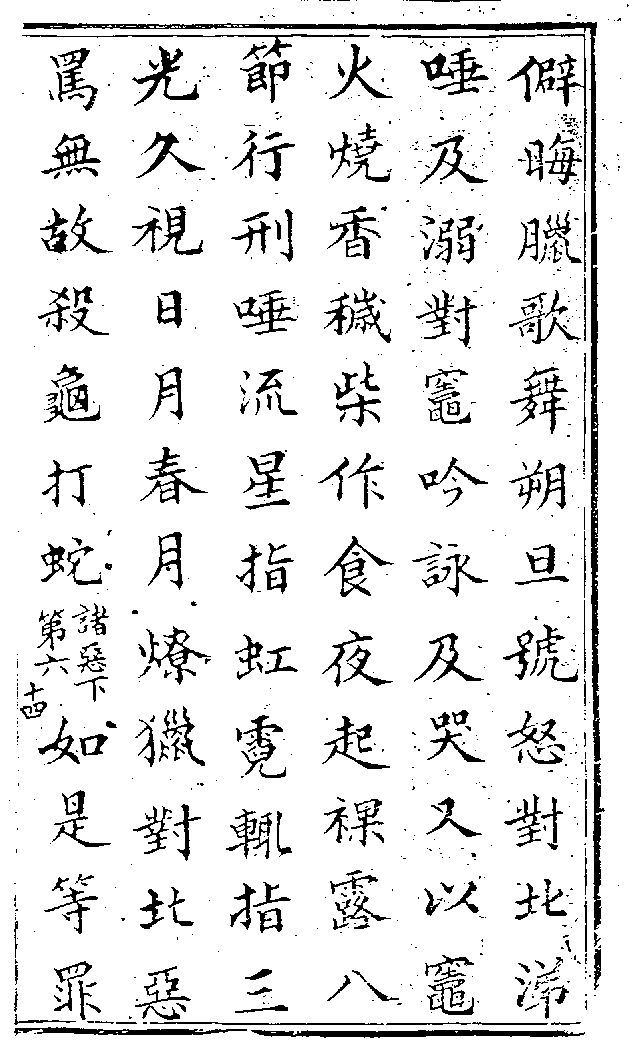 僻晦臘歌舞朔旦號怒對北涕
唾及溺對竈吟詠及哭又以竈
火燒香穢柴作食夜起裸露八
節行刑唾流星指虹霓輒指三
光久視日月春月燎獵對北惡
罵無故殺龜打蛇諸惡下第六十四如是等罪